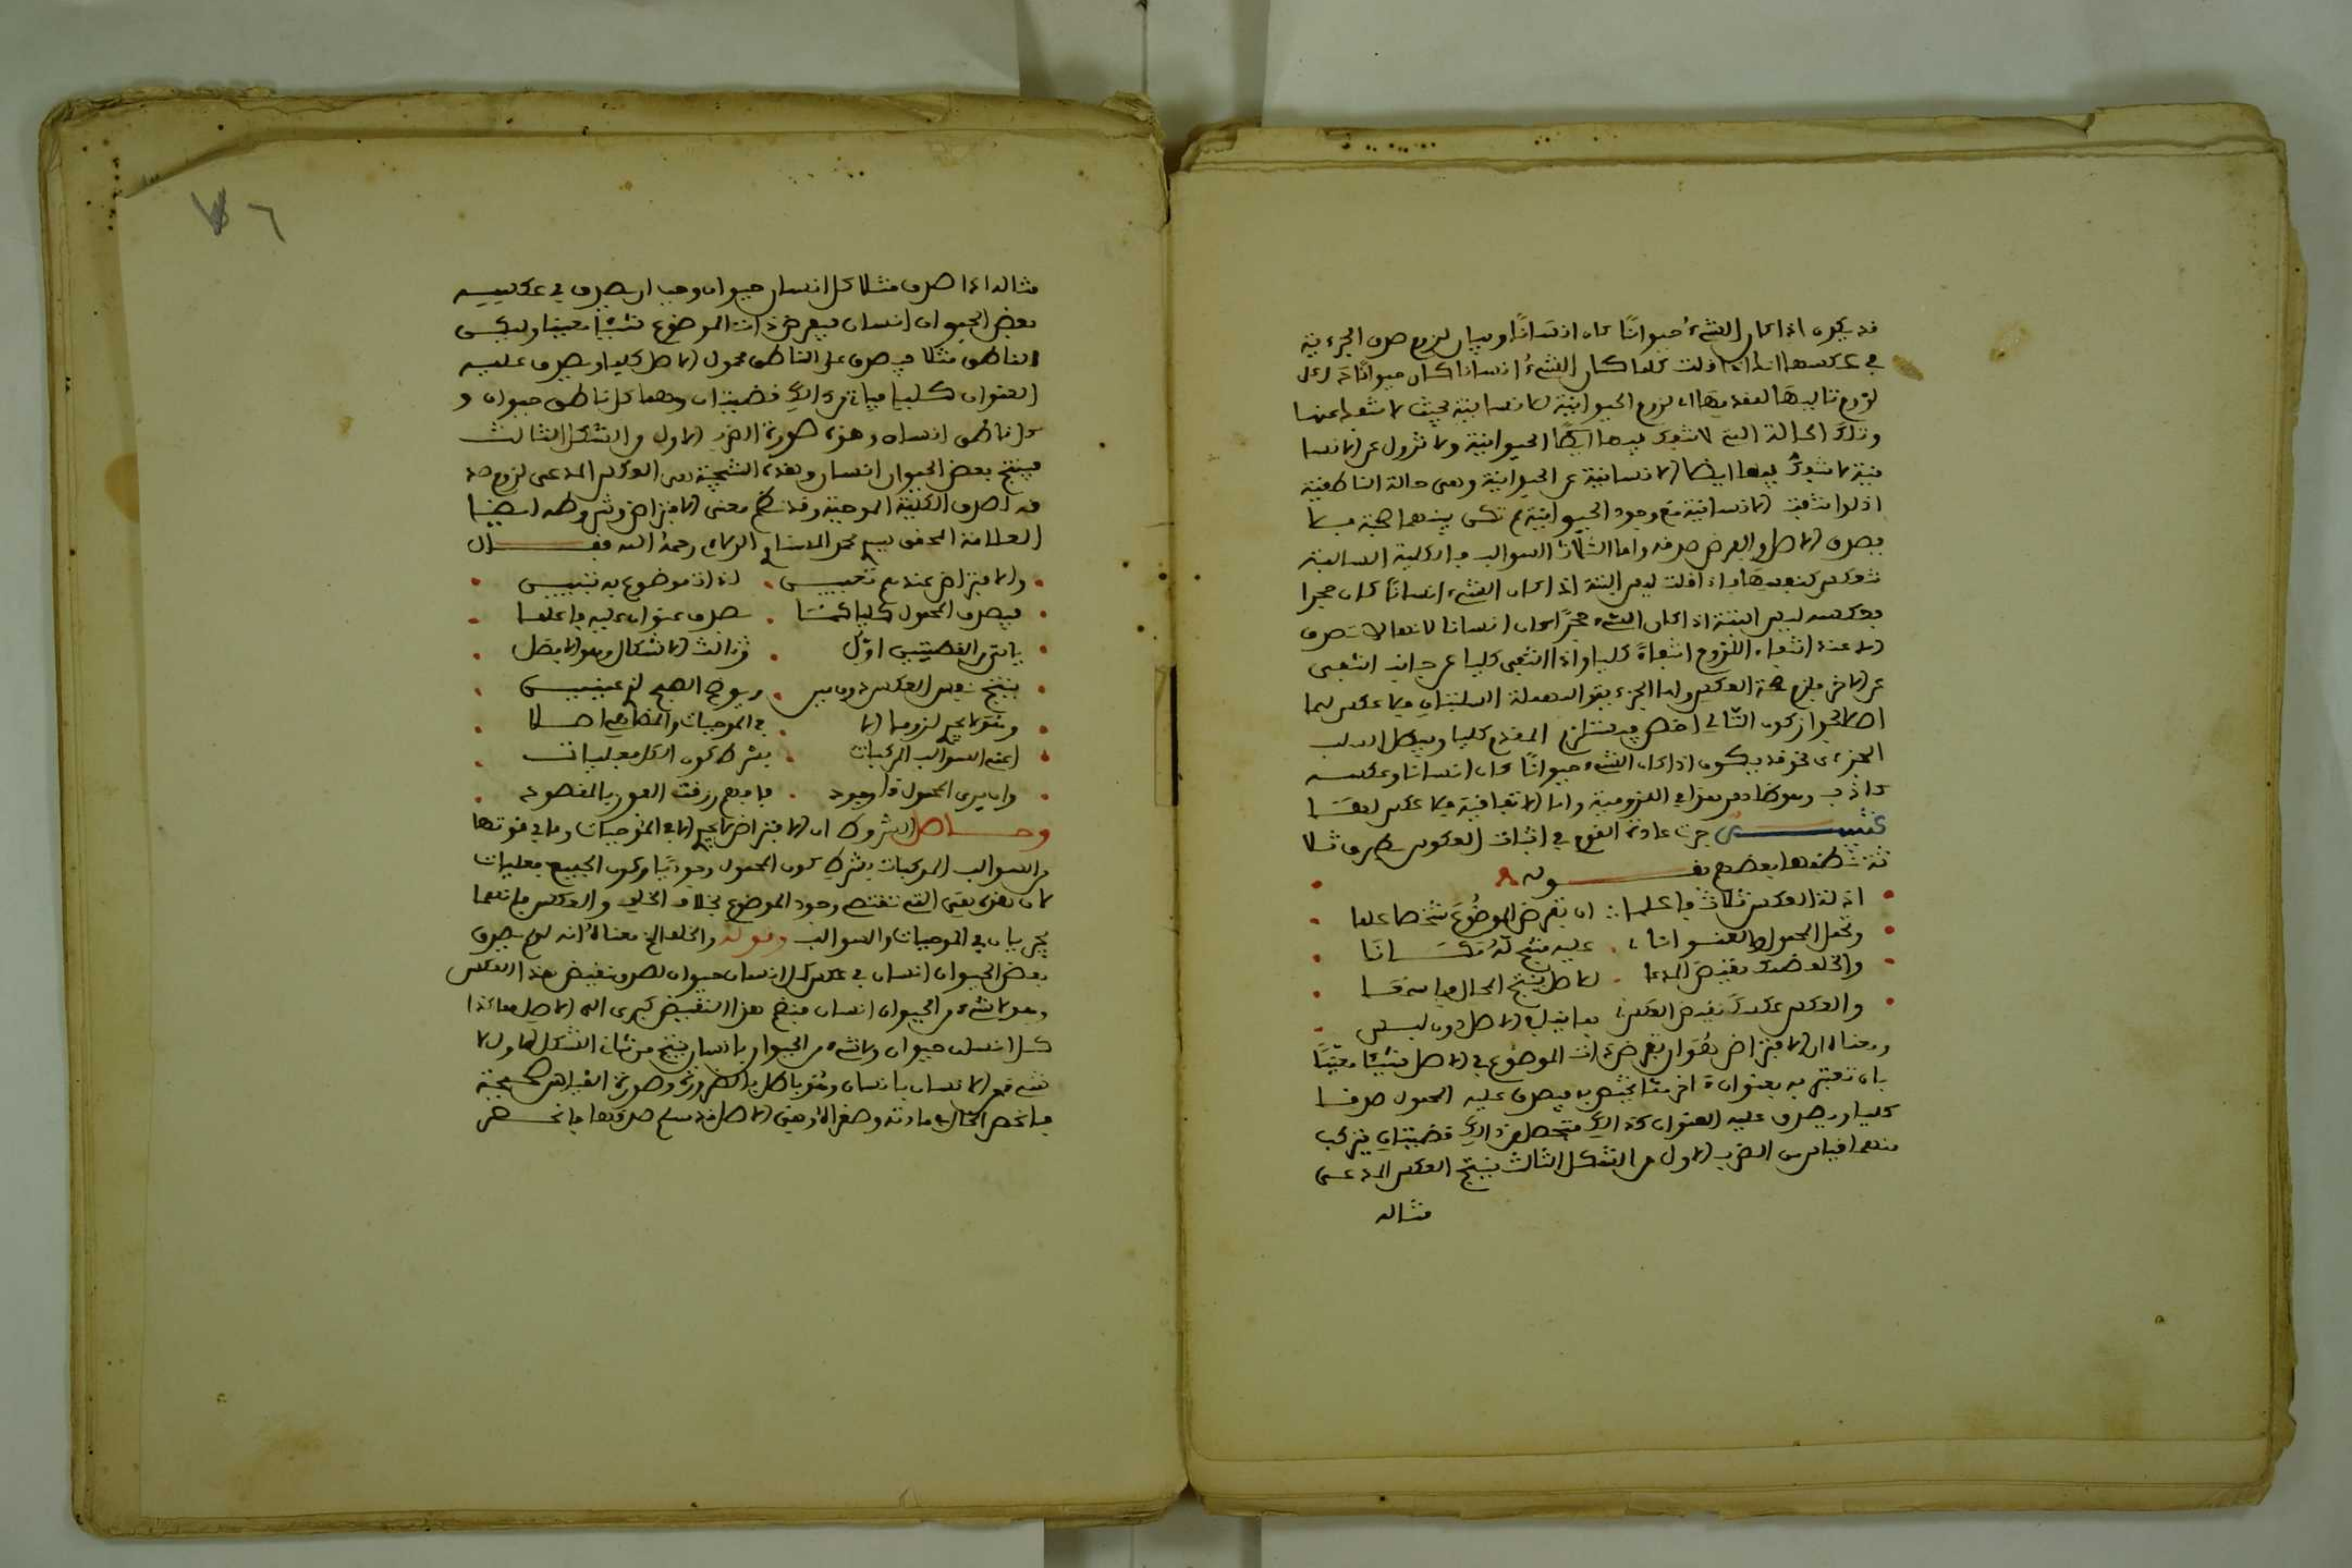 قد يكون اذا كان الشيء حيوانًا كان انسانًا وبيان لزوم صدق الجزءية
في عكسها انك اذا قلت كلما كان الشيء انسانا كان حيوانًا دل على
لزوم تاليها لمقدمها اي لزوم الحيوانية للانسانية بحيث لا تنفك عنها
وتلك الحالة التي لا تنفك فيها الحيوانية ولا تزول عن الانسا
نية لا تنفك فيها ايضا الانسانية عن الحيوانية وهي حالة الناطقية
اذ لو انتفت الانسانية مع وجود الحيوانية لم تكن بينهما صحبة
بصدق الاصل والفرض صدقه واما الثلاث السوالب فالكلية السالبة
تنعكس كنفسها فاذا قلت ليس البتة اذا كان الشيء انسانًا كان حجرا
فعكسه ليس البتة اذا كان الشيء حجرًا كان انسانا لانها لا تصدق
الا عند انتفاء اللزوم انتفاءً كليا واذا انتفى كليا عن جانب انتفى
عن الاخر فلزم صحة العكس واما الجزءية والمهملة السالبتان فلا عكس لهما
اصلا لجواز كون التالي اخص فيستلزم المقدم كليا ويبطل السلب
الجزءي نحو قد يكون اذا كان الشيء حيوانًا كان انسانا وعكسه
كاذب وهو ظاهر هذا في اللزومية واما الاتفاقية فلا عكس لها
تنبيه جرت عادة القوم في اثبات العكوس بطرق ثلا
ثة نظمها بعضهم بقوله
ادلة العكس ثلاث فاعلما ان تفرض الموضوع شخصا علما
وتحمل المحمول والعنوانا عليه ينتج له
والخلف ضمك نقيض المدعا للاصل ينتج المحال
والعكس عكسك نقيض العكس بما ينافي الاصل دون لبس
ومعناه ان الافتراض هو ان تفرض ذات الموضوع في الاصل شيئًا معيّنًا
بان تعتبره بعنوان اخر مما يختص به فيصدق عليه المحمول صدقا
كليا ويصدق عليه العنوان كذالك فتحصل من ذالك قضيتان فيتركب
منهما قياس من الضرب الاول من الشكل الثالث ينتج العكس المدعى
مثاله
٧٦
مثاله اذا صدق مثلا كل انسان حيوان وجب ان يصدق في عكسه
بعض الحيوان انسان فيفرض ذات الموضوع شيئا معينا وليكن
الناطق مثلا فيصدق على الناطق محمول الاصل كليا ويصدق عليه
العنوان كليا فياتي من ذالك قضيتان وهما كل ناطق حيوان و
كل ناطق انسان وهذه صورة الضرب الاول من الشكل الثالث
فينتج بعض الحيوان انسان وهذه النتيجة هي العكس المدعى لزوم صد
قه لصدق الكلية الموجبة وقد نظم معنى الافتراض وشروطه ايضا
العلامة المحقق سيدي محمد رحمه الله فقال
والافتراض عندهم تعيين لذات موضوع به تبيين
فيصدق المحمول كليا كما صدق عنوان عليه فاعلما
ياتي من القضيتين اول من ثالث الاشكال وهو الافضل
ينتج نفس العكس دون مين
وهو لا يجيء لزوما الا في الموجبات اصلا
اعني السوالب المركبات بشرط كون الكل فعليات
وان يرى المحمول ذا وجود فافهم رزقت الفوز بالمقصود
وحاصل الشروط ان الافتراض لا يجيء الا في الموجبات وما في قوتها
من السوالب المركبات بشرط كون المحمول وجوديا وكون الجميع فعليات
لان هذه هي التي تقتضي وجود الموضوع بخلاف الخلف والعكس فانهما
يجريان في الموجبات والسوالب وقوله والخلف الخ معناه انه لو لم يصدق
بعض الحيوان انسان في عكس كل انسان حيوان لصدق نقيض هذا العكس
وهو لا شيء من الحيوان انسان فنضم هذا النقيض كبرى الى الاصل هاكذا
كل انسان حيوان ولا شيء من الحيوان بانسان ينتج من ثاني الشكل الاول لا
شيء من الانسان بانسان وهو باطل بالضرورة وصورة القياس صحيحة
فانحصر الخلل في مادته وصغراه وهي الاصل قد سلم صدقها فانحصر